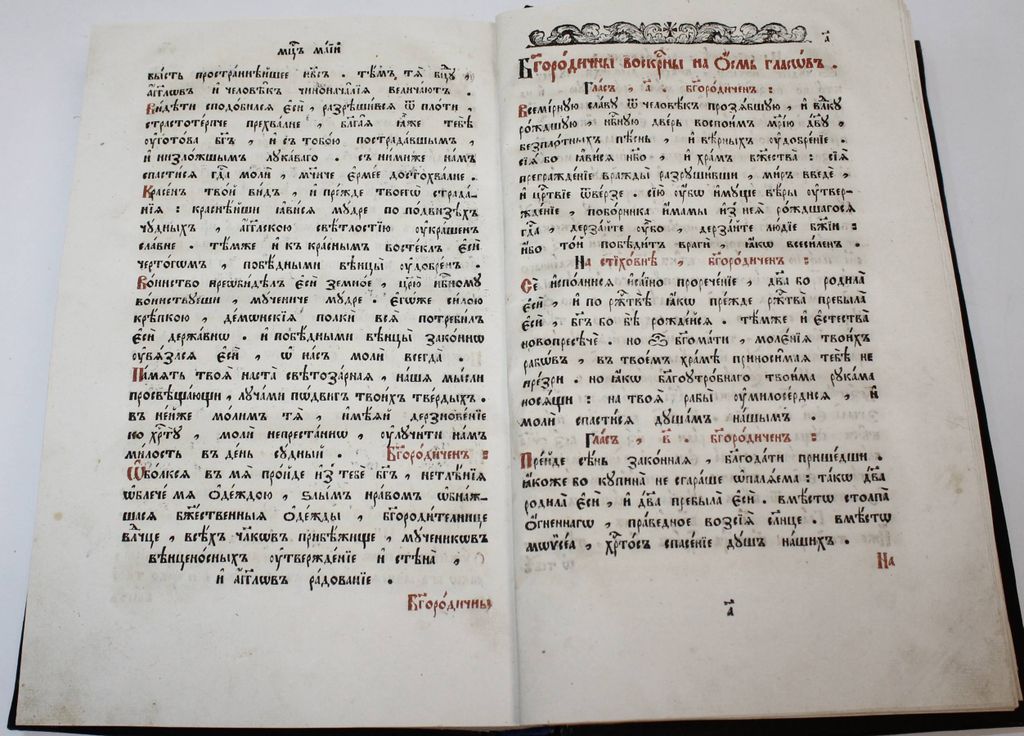 мцⷭ҇ъ маїй
бысть пространнѣйшее нб҃съ . тѣ́мъ тѧ̀ бц҃у ,
а҆́гг҃лѡвъ и҆ человѣ́къ чиноначалїѧ величаютъ .
Видѣти сподобилсѧ є҆сѝ , разрѣшивсѧ ѿ плоти ,
страстотерпче прехвалне , благаѧ ꙗ҆́же тебѣ̀
оу҆готова бг҃ъ , и҆ съ тобою пострадавшымъ ,
и҆ низложшымъ лукаваго . съ нимиже намъ
спастисѧ гдⷭ҇а молѝ , мч҃нче є҆рмее достохвалне .
Красенъ твой видъ , и҆ прежде твоегѡ страда-
нїѧ : краснѣйши ꙗ҆висѧ мудре по подвизѣхъ
чудныхъ , а҆́гг҃лскою свѣтлостїю оу҆крашенъ
славне . тѣ́мже и҆ къ краснымъ востеклъ є҆сѝ
чертогѡмъ , побѣдными вѣнцы оу҆добренъ .
Воинство невидѣлъ є҆сѝ земное , цр҃ю нбⷭ҇ному
воинствуеши , мучениче мудре . є҆гѡже силою
крѣпкою , демѡнскїѧ полки всѧ̀ потребилъ
є҆сѝ державнѡ . и҆ побѣдными вѣнцы законнѡ
оу҆вѧзлсѧ є҆сѝ , ѡ҆ насъ молѝ всегда .
Память твоѧ̀ наста свѣтозарнаѧ , нашѧ мысли
просвѣщающи , лучами подвигъ твоихъ твердыхъ .
въ нейже молимъ тѧ̀ , и҆мѣѧй дерзновенїе
ко хрⷭ҇ту , молѝ непрестаннѡ , оу҆лучити намъ
милость въ день судный . Бг҃ородиченъ :
Ѡ҆болксѧ въ мѧ̀ пройде и҆зъ тебе бг҃ъ , нетлѣнїѧ
ѡ҆блече мѧ̀ ѻ҆деждою , ѕлымъ нравомъ ѡ҆бнаж-
шасѧ бжⷭ҇твенныѧ ѻ҆дежды , бг҃ородителнице
влⷣчце , всѣхъ чл҃кѡвъ прибѣжище , мученикѡвъ
вѣнценосныхъ оу҆твержденїе и҆ стѣна ,
и҆ а҆́гг҃лѡвъ радованїе .
Бг҃ородичны
а҃
Бг҃ородичны воскрⷭ҇ны на ѻ҆смь гласѡвъ .
Гласъ , а҃ . бг҃ородиченъ :
Всемірную славу ѿ человѣкъ прозѧбшую , и҆ влⷣку
рождшую , нбⷭ҇ную дверь воспоимъ мр҃їю дв҃у ,
безплотныхъ пѣснь , и҆ вѣрныхъ оу҆добренїе .
сїѧ̀ бо ꙗ҆висѧ нб҃о , и҆ храмъ бжⷭ҇тва : сїѧ̀
преграждение вражды разрушивши , миръ введе ,
и҆ црⷭ҇твїе ѿверзе . сїю оу҆бѡ и҆муще вѣры оу҆твер-
жденїе , поборника и҆мамы и҆зъ неѧ̀ рождшагосѧ
гдⷭ҇а , дерзайте оу҆бо , дерзайте людїе бж҃їи :
и҆́бо той побѣдитъ враги , ꙗ҆кѡ всесиленъ .
На стїховнѣ , бг҃ородиченъ :
Се и҆сполнисѧ и҆саино проречение , дв҃а бо родила
є҆сѝ , и҆ по ржⷭ҇твѣ ꙗ҆кѡ прежде ржⷭ҇тва пребыла
є҆сѝ , бг҃ъ бо бѣ рождейсѧ . тѣмже и҆ є҆стества
новопресѣче . но ѽ бг҃омати , моленїѧ твоихъ
рабѡвъ , въ твоемъ храмѣ приносимаѧ тебѣ не
презри . но ꙗ҆кѡ благоутробнаго твоима рукама
носѧщи : на твоѧ̀ рабы̀ оу҆милосердисѧ , и҆
молѝ спастисѧ душамъ нашымъ .
Гласъ , в҃ . бг҃ородиченъ :
Прейде сѣнь законнаѧ , благодати пришедши .
ꙗ҆коже бо купина не сгараше ѡ҆палѧема : такѡ дв҃а
родила є҆сѝ , и҆ дв҃а пребыла є҆сѝ . вмѣстѡ столпа
ѻ҆гненнагѡ , праведное возсїѧ̀ слн҃це . вмѣстѡ
мѡѷсеа , хрⷭ҇тосъ спасенїе душъ нашихъ .
На
а҃